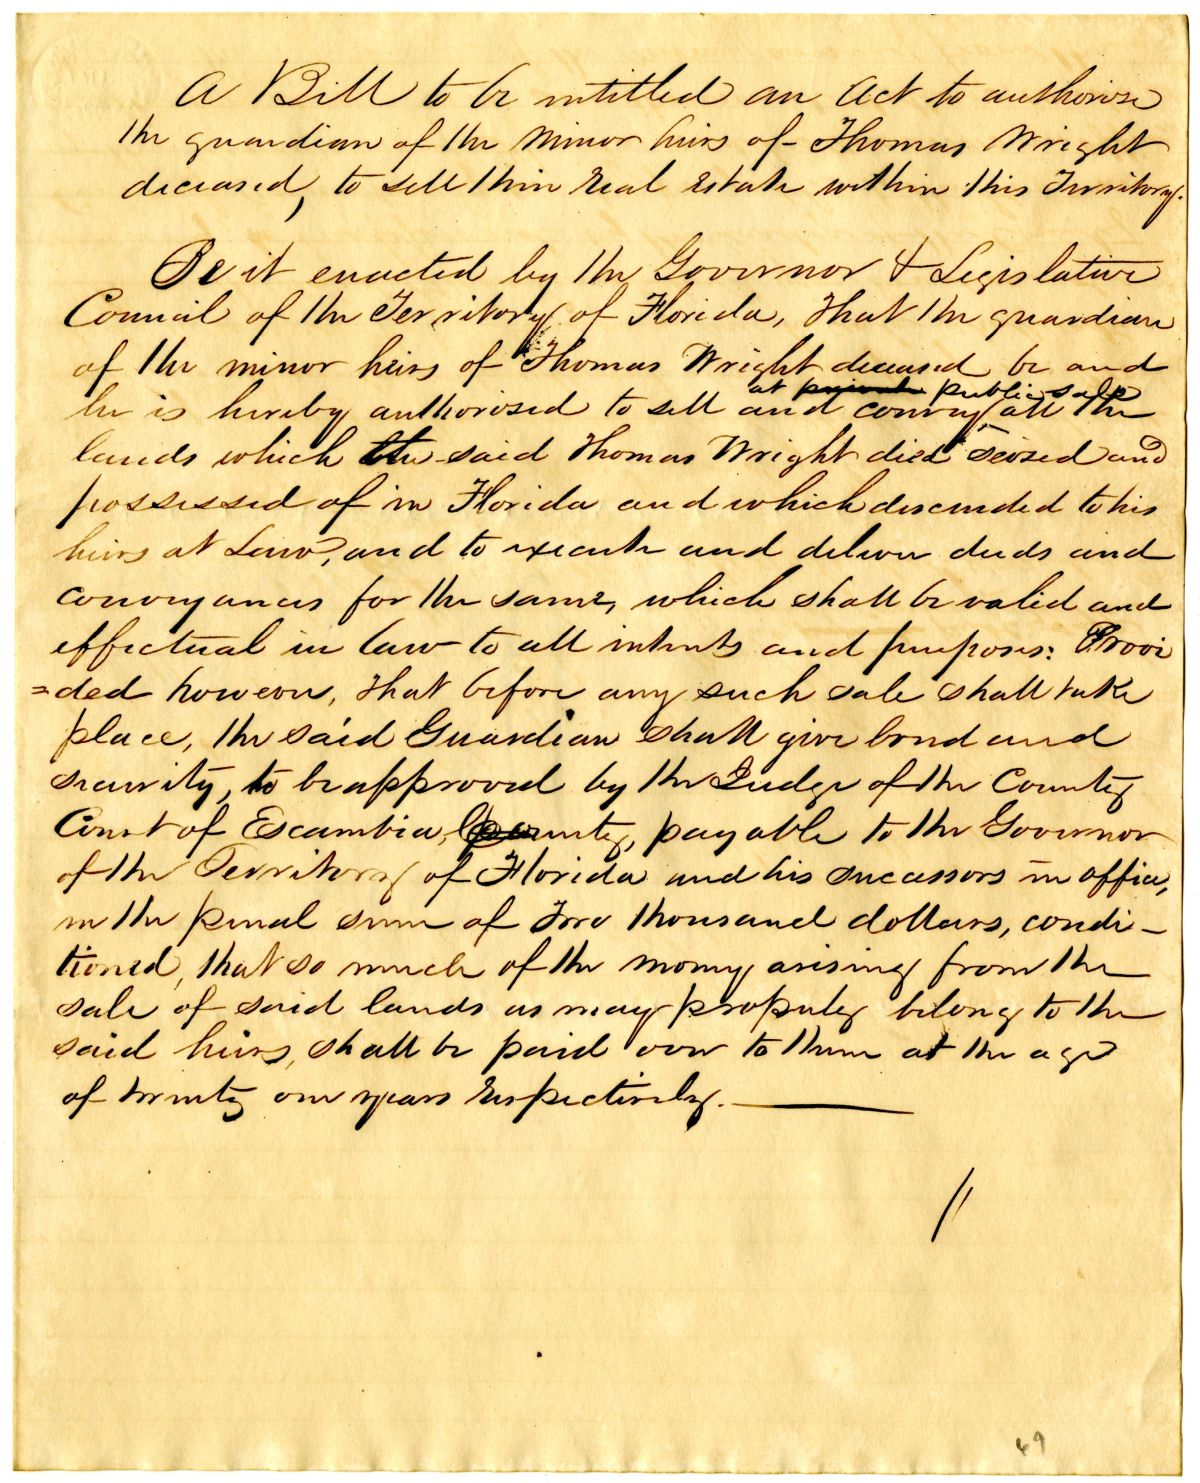 A Bill to be intitled an Act to authorise
the guardian of the Minor heirs of Thomas Wright
deceased, to sell their real estate within this Territory.
Be it enacted by the Governor & Legislative
Council of the Territory of Florida, That the guardian
of the minor heirs of Thomas Wright deceased be and
at private public sale
he is hereby authorised to sell and convey all the
lands which the said Thomas Wright died seized and
possessed of in Florida and which descended to his
heirs at Law, and to execute and deliver deeds and
conveyances for the same, which shall be valid and
effectual in law to all intents and purposes: Provi
=ded however, that before any such sale shall take
place, the said Guardian shall give bond and
security, to be approved by the Judge of the County
Court of Escambia County, payable to the Governor
of the Territory of Florida and his successors in office,
in the penal sum of Two thousand dollars, condi-
tioned, that so much of the money arising from the
sale of said lands as may properly belong to the
said heirs, shall be paid over to them at the age
of twenty one years respectively.
49